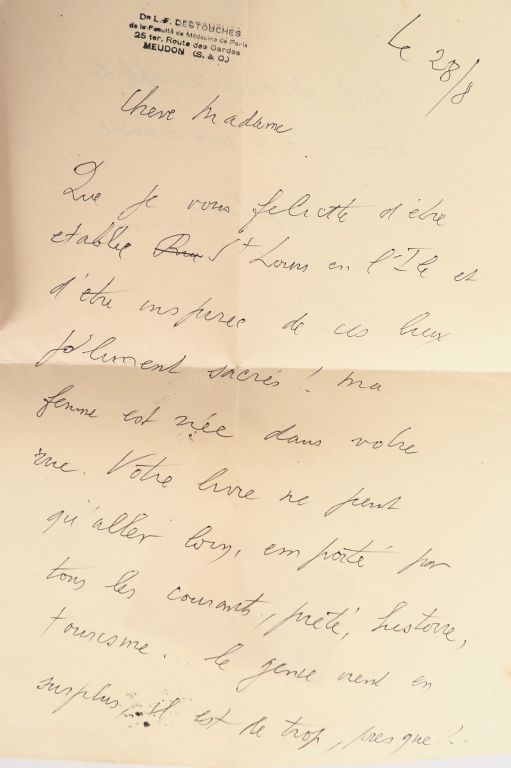 Dr L.-F. DESTOUCHES
de la Faculté de Médecine de Paris
25 ter, Route des Gardes
MEUDON (S. & O.)
Le 28/8
Chere Madame
Que je vous felicite d'être
etablie St Louis en l'Ile et
d'être inspirée de ces lieux
joliment sacrés ! ma
femme est née dans votre
rue. Votre livre ne peut
qu'aller loin, emporté par
tous les courants, piété, histoire,
tourisme... le genie vient en
surplus, il est de trop, presque !..